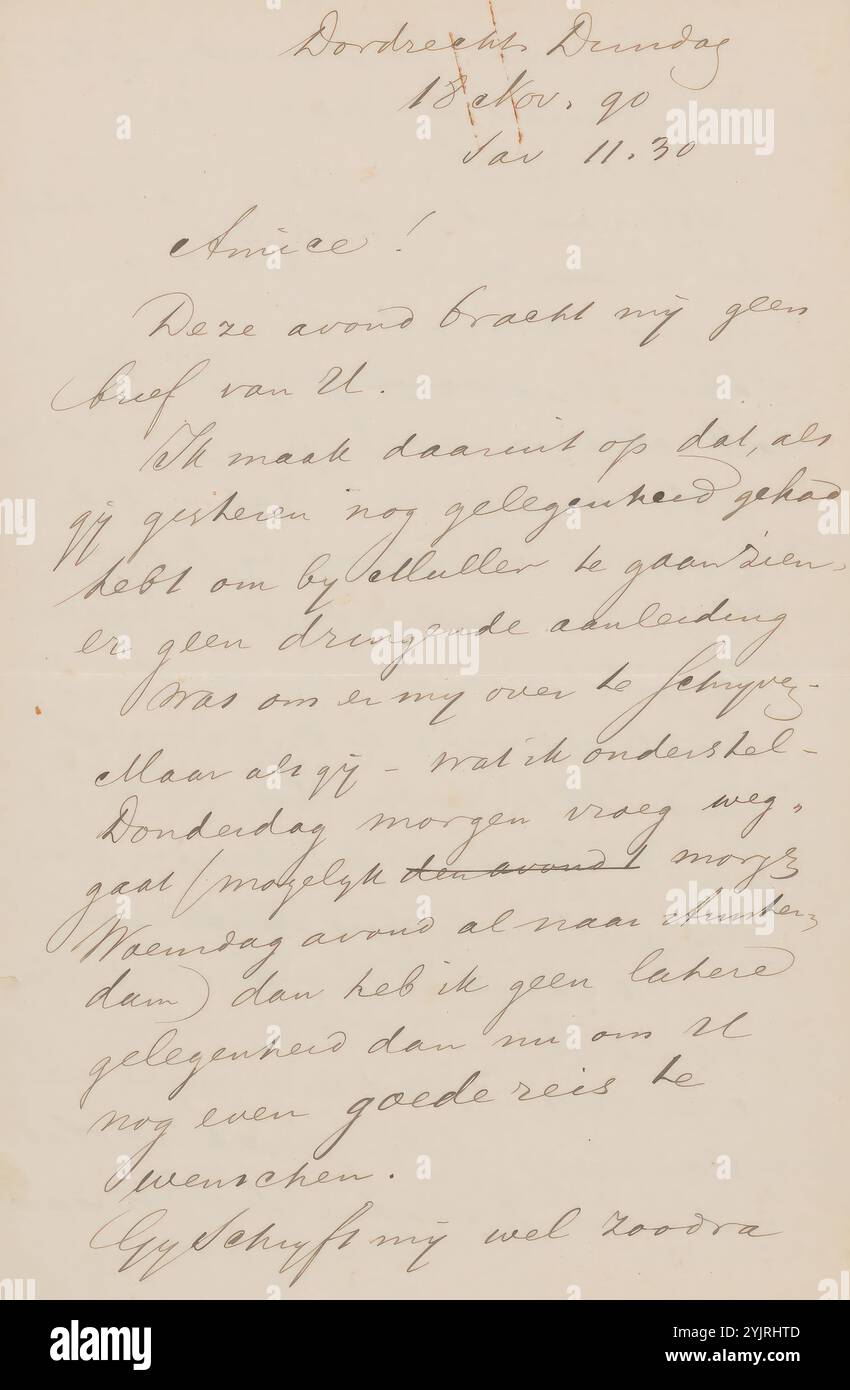 Dordrecht Dinsdag
18 Nov. 90
Sav 11.30
Amice!
Deze avond bracht mij geen
brief van U.
Ik maak daaruit op dat, als
gij gisteren nog gelegenheid gehad
hebt om by Muller te gaan zien,
er geen dringende aanleiding
was om er mij over te schryven.
Maar als gij - wat ik onderstel -
Donderdag morgen vroeg weg-
gaat (mogelyk den avond morgen
Woensdag avond al naar Amster-
dam) dan heb ik geen latere
gelegenheid dan nu om U
nog even goede reis te
wenschen.
Gy Schryft mij wel zoodra
alamy
Image ID: 2YJRHTD
www.alamy.com